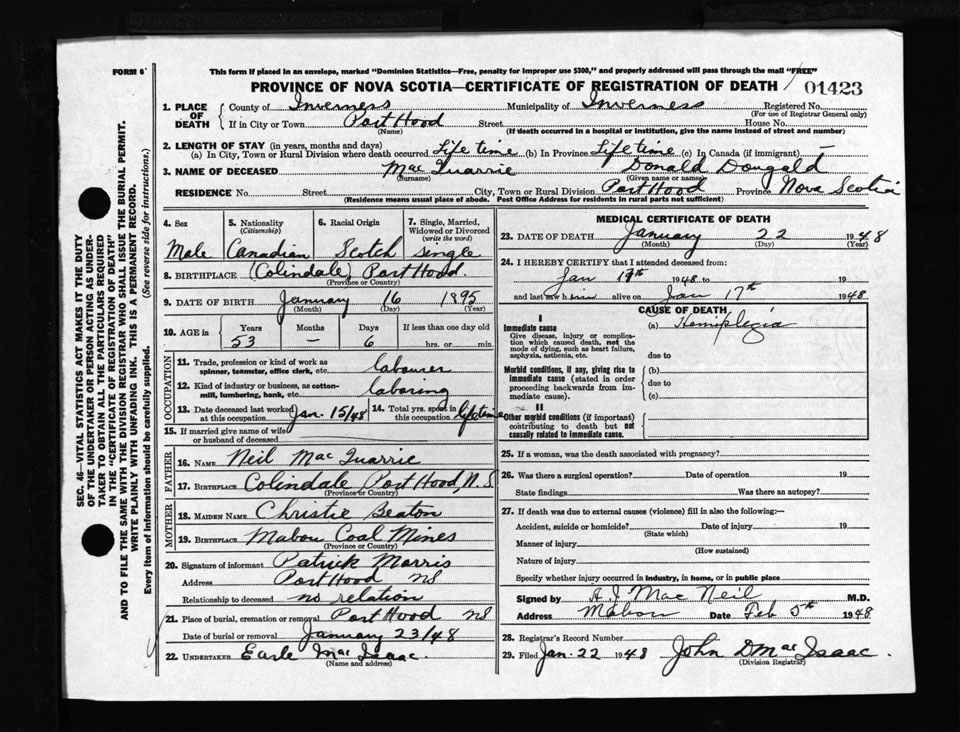 FORM 6
This form if placed in an envelope, marked "Dominion Statistics—Free, penalty for improper use $300," and properly addressed will pass through the mail "FREE"
PROVINCE OF NOVA SCOTIA—CERTIFICATE OF REGISTRATION OF DEATH 01423
1. PLACE OF DEATH
County of Inverness Municipality of Inverness Registered No.
(For use of Registrar General only)
If in City or Town Port Hood Street House No.
(Name) (If death occurred in a hospital or institution, give the name instead of street and number)
2. LENGTH OF STAY (in years, months and days)
(a) In City, Town or Rural Division where death occurred Life time (b) In Province Life time (c) In Canada (if immigrant) —
3. NAME OF DECEASED Mac Quarrie Donald Dougald
(Surname) (Given name or names)
RESIDENCE No. Street City, Town or Rural Division Port Hood Province Nova Scotia
(Residence means usual place of abode. Post Office Address for residents in rural parts not sufficient)
4. Sex 5. Nationality (Citizenship) 6. Racial Origin 7. Single, Married, Widowed or Divorced (write the word)
Male Canadian Scotch single
8. BIRTHPLACE (Colindale) Port Hood.
(Province or Country)
9. DATE OF BIRTH January 16 1895
(Month) (Day) (Year)
10. AGE in Years Months Days If less than one day old
53 — 6 hrs. or min.
OCCUPATION
11. Trade, profession or kind of work as spinner, teamster, office clerk, etc. labourer
12. Kind of industry or business, as cotton-mill, lumbering, bank, etc. laboring
13. Date deceased last worked at this occupation Jan. 15/48 14. Total yrs. spent in this occupation lifetime
15. If married give name of wife or husband of deceased
FATHER
16. NAME Neil Mac Quarrie
17. BIRTHPLACE Colindale Port Hood, N.S
(Province or Country)
MOTHER
18. MAIDEN NAME Christie Beaton
19. BIRTHPLACE Mabou Coal Mines
(Province or Country)
20. Signature of informant Patrick Morris
Address Port Hood NS
Relationship to deceased no relation
21. Place of burial, cremation or removal Port Hood NS
Date of burial or removal January 23/48
22. UNDERTAKER Earle Mac Isaac.
(Name and address)
MEDICAL CERTIFICATE OF DEATH
23. DATE OF DEATH January 22 1948
(Month) (Day) (Year)
24. I HEREBY CERTIFY that I attended deceased from:
Jan 17th 1948 to 19
and last saw him alive on Jan 17th 1948
CAUSE OF DEATH
I
Immediate cause (a) Hemiplegia
Give disease, injury or complication which caused death, not the mode of dying, such as heart failure, asphyxia, asthenia, etc.
due to
Morbid conditions, if any, giving rise to immediate cause (stated in order proceeding backwards from immediate cause).
(b)
due to
(c)
II
Other morbid conditions (if important) contributing to death but not causally related to immediate cause.
25. If a woman, was the death associated with pregnancy?
26. Was there a surgical operation? Date of operation 19
State findings Was there an autopsy?
27. If death was due to external causes (violence) fill in also the following:—
Accident, suicide or homicide? Date of injury 19
(State which)
Manner of injury
(How sustained)
Nature of injury
Specify whether injury occurred in industry, in home, or in public place
Signed by A. J. Mac Neil M.D.
Address Mabou Date Feb 5th 1948
28. Registrar's Record Number
29. Filed Jan. 22 1948 John D Mac Isaac.
(Division Registrar)
SEC. 46—VITAL STATISTICS ACT MAKES IT THE DUTY
OF THE UNDERTAKER OR PERSON ACTING AS UNDER-
TAKER TO OBTAIN ALL THE PARTICULARS REQUIRED
IN THE "CERTIFICATE OF REGISTRATION OF DEATH"
AND TO FILE THE SAME WITH THE DIVISION REGISTRAR WHO SHALL ISSUE THE BURIAL PERMIT.
WRITE PLAINLY WITH UNFADING INK. THIS IS A PERMANENT RECORD.
Every item of information should be carefully supplied. (See reverse side for instructions.)